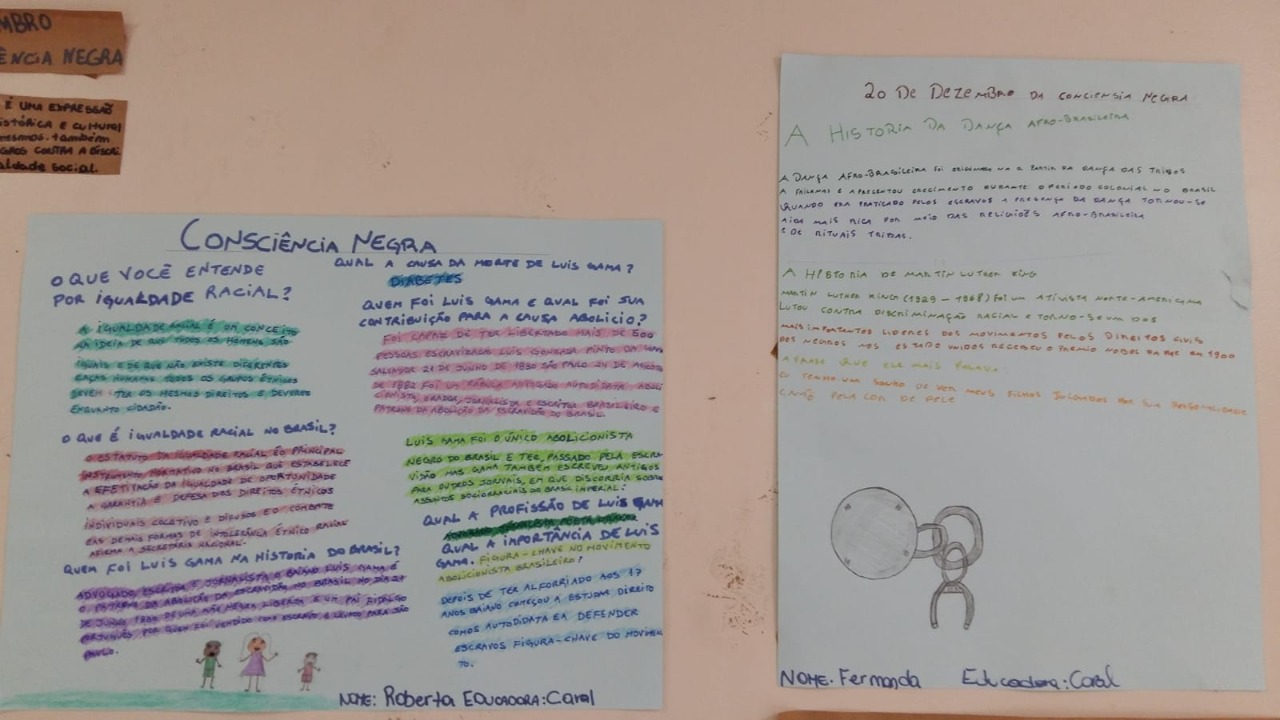 MBRO
ÊNCIA NEGRA
É UMA EXPRESSÃO
ISTÓRICA E CULTURAL
mesmos. também
GROS CONTRA A DISCRI
aldade social.
CONSCIÊNCIA NEGRA
O QUE VOCÊ ENTENDE
POR IGUALDADE RACIAL?
A IGUALDADE RACIAL É UM CONCEITO
NA IDEIA DE QUE TODOS OS HOMENS SÃO
IGUAIS E DE QUE NÃO EXISTE DIFERENTES
RAÇAS HUMANAS TODOS OS GRUPOS ÉTNICOS
DEVEM TER OS MESMOS DIREITOS E DEVERES
ENQUANTO CIDADÃO.
O QUE É IGUALDADE RACIAL NO BRASIL?
O ESTATUTO DA IGUALDADE RACIAL ÉO PRINCIPAL
INSTRUMENTO NORMATIVO NO BRASIL QUE ESTABELECE
A EFETIVAÇÃO DA IGUALDADE DE OPORTUNIDADE
A GARANTIA E DEFESA DOS DIREITOS ÉTNICOS
INDIVIDUAIS COLETIVO E DIFUSOS EO COMBATE
EAS DEMAIS FORMAS DE INTOLERÂNCIA ÉTNICO RACIAL
AFIRMA A SECRETÁRIA NACIONAL.
QUEM FOI LUIS GAMA NA HISTORIA DO BRASIL?
ADVOGADO ESCRITOR E JORNALISTA O BAIANO LUIS GAMA É
O PATRONO DA ABOLIÇÃO DA ESCRAVIDÃO NO BRASIL NO DIA 21
DE JUNHO 1830 DE UMA MÃE NEGRA LIBERTA E UM PAI FIDALGO
PORTUGUÊS POR QUEM FOI VENDIDO COMO ESCRAVO E LEVADO PARA SÃO
PAULO.
QUAL A CAUSA DA MORTE DE LUIS GAMA?
DIABETES
QUEM FOI LUIS GAMA E QUAL FOI SUA
CONTRIBUIÇÃO PARA A CAUSA ABOLICIO?
FOI CAPAZ DE TER LIBERTADO MAIS DE 500
PESSOAS ESCRAVIZADAS LUIS GONZAGA PINTO DA GAMA
SALVADOR 21 DE JUNHO DE 1830 SÃO PAULO 24 DE AGOSTO
DE 1882 FOI UM RÁBULA ADVOGADO AUTODIDATA ABOLI
CIONISTA, ORADOR, JORNALISTA E ESCRITOR BRASILEIRO E
PATRONO DA ABOLIÇÃO DA ESCRAVIDÃO DO BRASIL.
LUIS GAMA FOI O ÚNICO ABOLICIONISTA
NEGRO DO BRASIL E TER, PASSADO PELA ESCRA
VIDÃO MAS GAMA TAMBÉM ESCREVEU ANTIGOS
PARA OUTROS JORNAIS, EM QUE DISCORRIA SOBRE
ASSUNTOS SOCIORRACIAIS DO BRASIL IMPERIAL:
QUAL A PROFISSÃO DE LUIS GAMA
QUAL A IMPORTÂNCIA DE LUIS
GAMA. FIGURA-CHAVE NO MOVIMENTO
ABOLICIONISTA BRASILEIRO?
DEPOIS DE TER ALFORRIADO AOS 17
ANOS BAIANO COMEÇOU A ESTUDAR DIREITO
COMOS AUTODIDATA EA DEFENDER
ESCRAVOS FIGURA-CHAVE DO MOVIMEN
TO.
NOME: Roberta EDUCADORA: Carol
20 DE DEZEMBRO DA CONCIENSIA NEGRA
A HISTORIA DA DANÇA AFRO-BRASILEIRA
A DANÇA AFRO-BRASILEIRA FOI A PARTIR DA DANÇA DAS TRIBOS
A FRICANAS E APRESENTOU CRECIMENTO DURANTE O PERÍODO COLONIAL NO BRASIL
QUANDO ERA PRATICADO PELOS ESCRAVOS A PRESENÇA DA DANÇA TORNOU-SE
AIDA MAIS RICA POR MEIO DAS RELIGIÕES AFRO-BRASILEIRA
E DE RITUAIS TRIBAS.
A HISTORIA DE MARTIN LUTHER KING
MARTIN LUTHER KING (1929-1968) FOI UM ATIVISTA NORTE-AMERICANA
LUTOU CONTRA DISCRIMINAÇÃO RACIAL E TORNO-SEUM DOS
MAIS IMPORTANTES LIDERES DOS MOVIMENTOS PELOS DIREITOS CIVIS
DOS NEGROS NOS ESTADO UNIDOS RECEBEU O PREMIO NOBEL DA PAZ EM 1900
A FRASE QUE ELE MAIS FALAVA:
EU TENHO UM SONHO DE VER MEUS FILHOS JULGADOS POR SUA PERSONALIDADE
PELA COR DE PELE
NOME. Fernanda Educadora: Carol